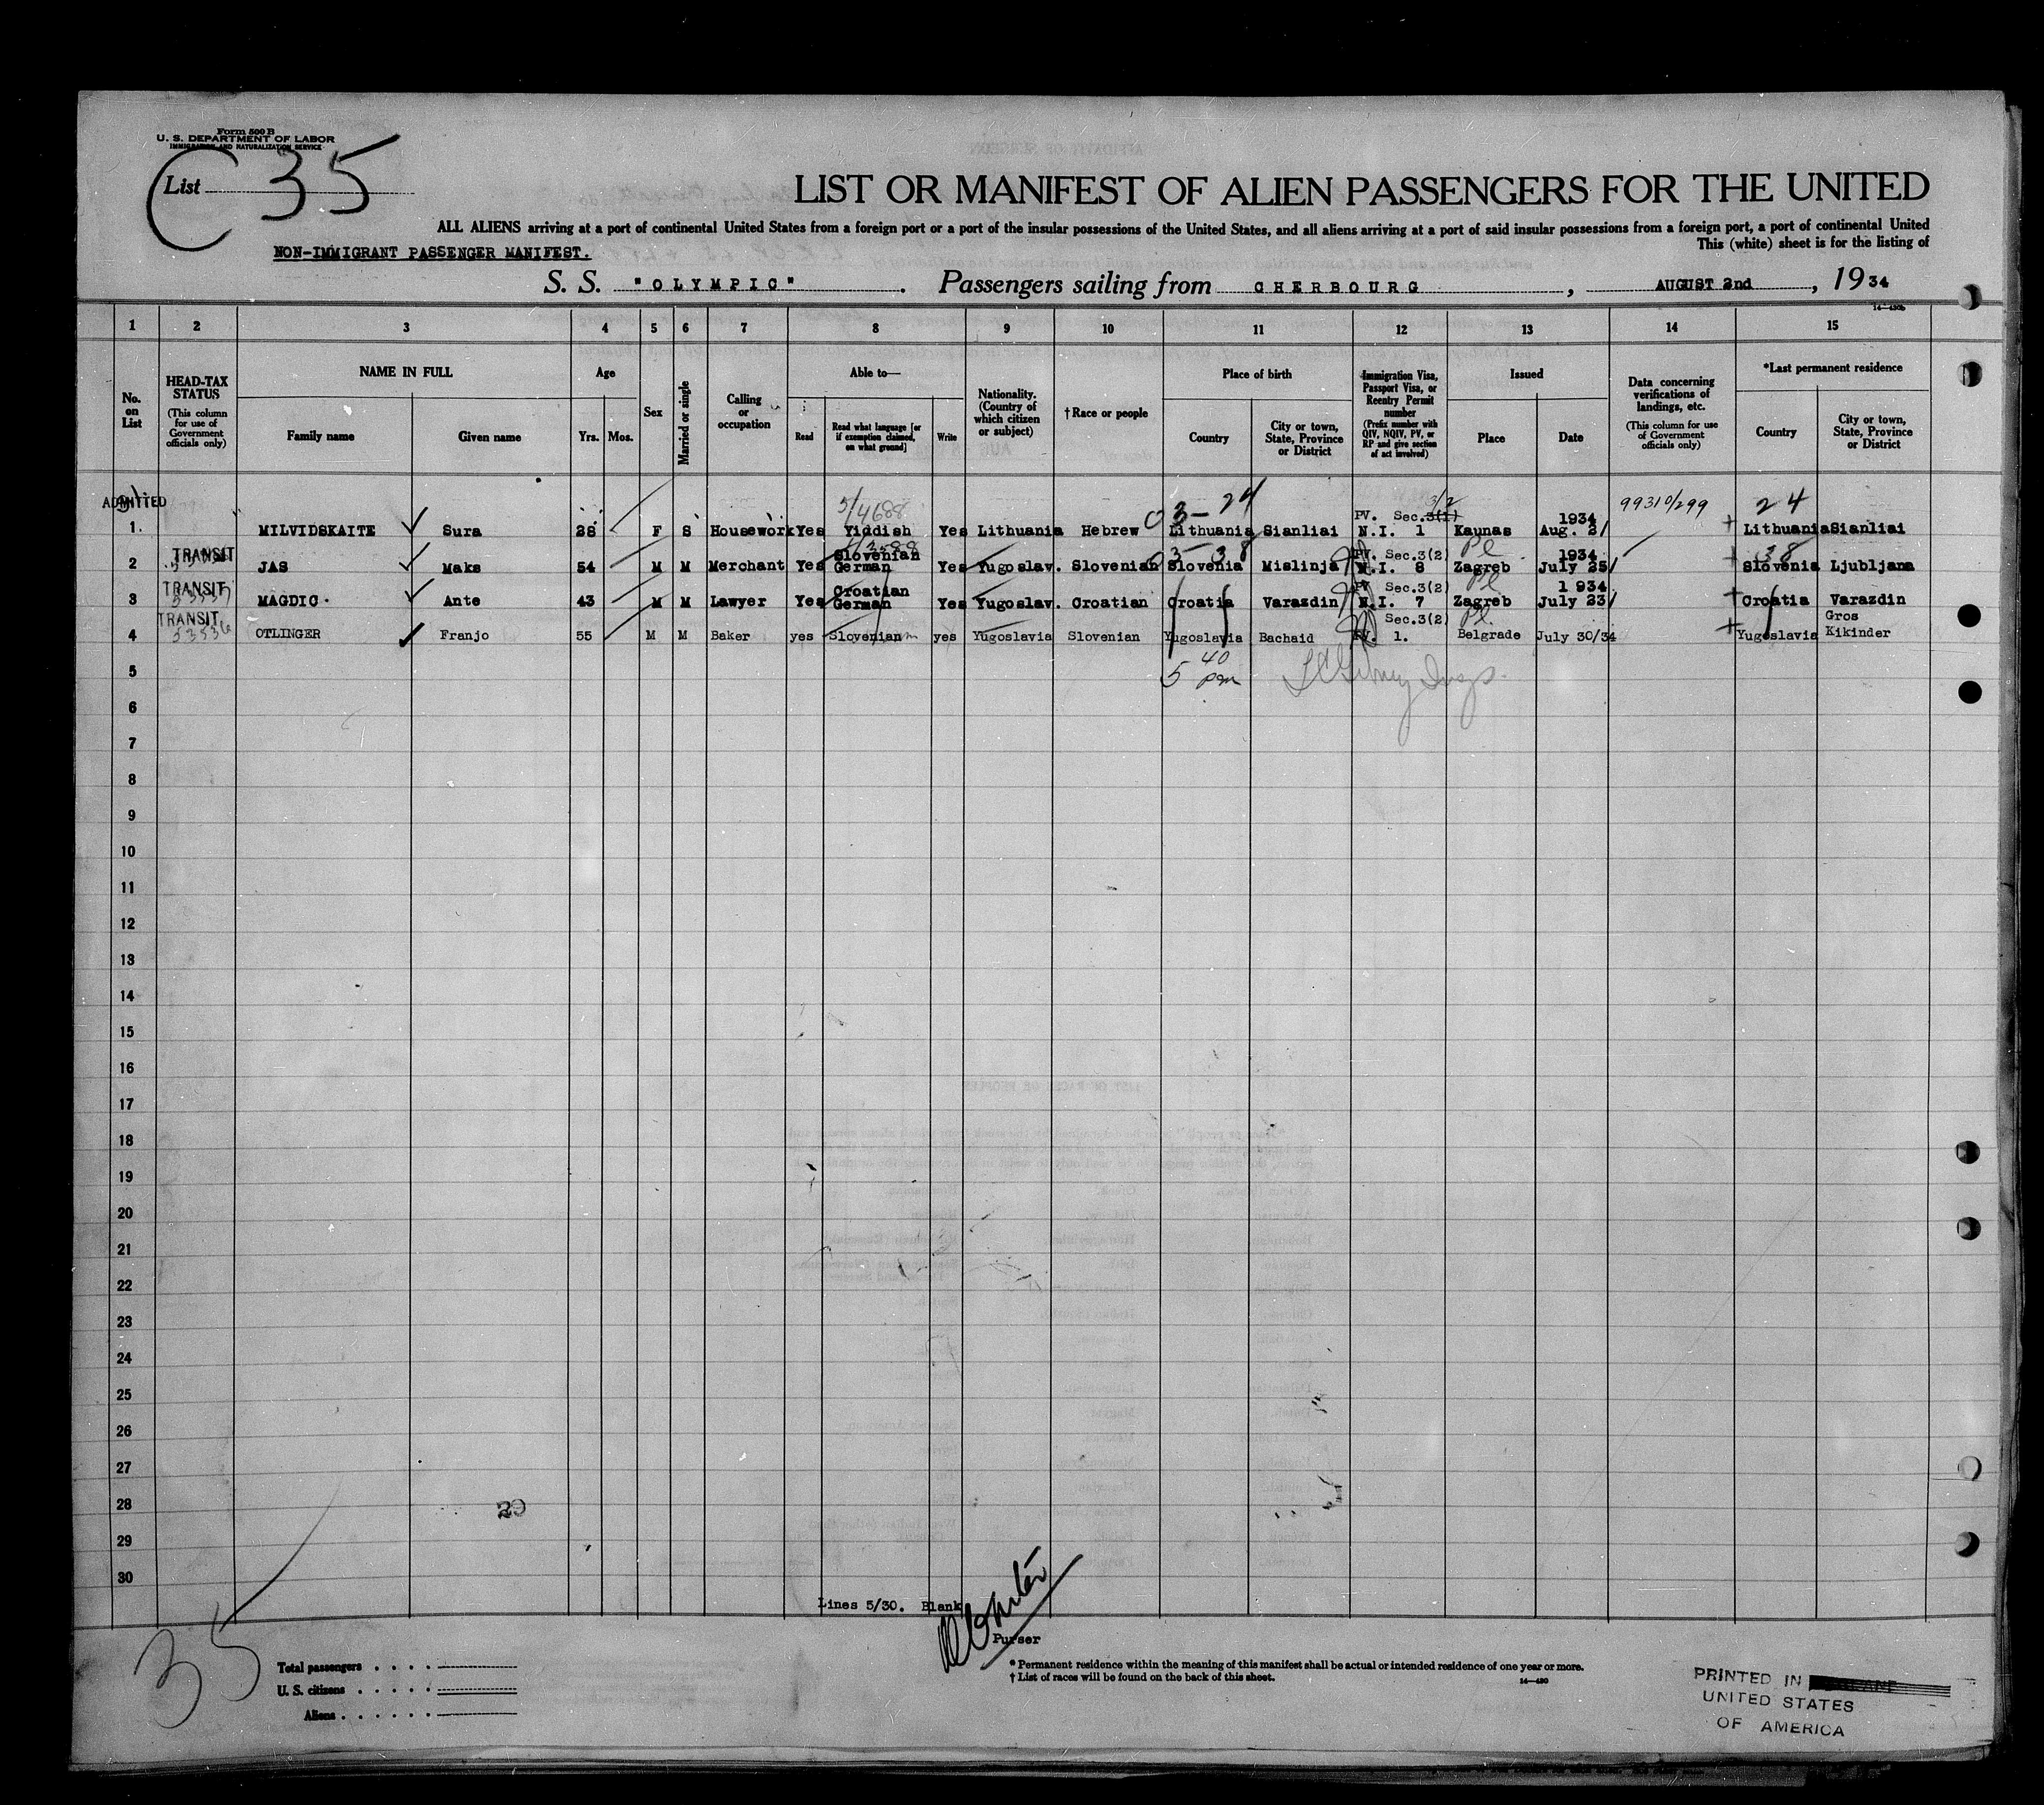 Form 500 B
U. S. DEPARTMENT OF LABOR
IMMIGRATION AND NATURALIZATION SERVICE
List 35
LIST OR MANIFEST OF ALIEN PASSENGERS FOR THE UNITED
ALL ALIENS arriving at a port of continental United States from a foreign port or a port of the insular possessions of the United States, and all aliens arriving at a port of said insular possessions from a foreign port, a port of continental United
This (white) sheet is for the listing of
NON-IMMIGRANT PASSENGER MANIFEST.
S. S. "OLYMPIC". Passengers sailing from CHERBOURG, AUGUST 2nd, 1934
14—430b
1 2 3 4 5 6 7 8 9 10 11 12 13 14 15
No. on List
HEAD-TAX STATUS (This column for use of Government officials only)
NAME IN FULL
Family name
Given name
Age
Yrs. Mos.
Sex
Married or single
Calling or occupation
Able to—
Read
Read what language [or if exemption claimed, on what ground]
Write
Nationality. (Country of which citizen or subject)
†Race or people
Place of birth
Country
City or town, State, Province or District
Immigration Visa, Passport Visa, or Reentry Permit number (Prefix number with QIV, NQIV, PV, or RP and give section of act involved)
Issued
Place
Date
Data concerning verifications of landings, etc. (This column for use of Government officials only)
*Last permanent residence
Country
City or town, State, Province or District
ADMITTED
3/4688 03-24 3/2 99310/299 24
PV. Sec.3(1) 1934
1 MILVIDSKAITE Sura 28 F S Housework Yes Yiddish Yes Lithuania Hebrew Lithuania Sianliai N.I. 1 Kaunas Aug. 2/ Lithuania Sianliai
TRANSIT Slovenian 03-38 PV. Sec.3(2) Pl 1934 38
2 JAS Maks 54 M M Merchant Yes German Yes Yugoslav. Slovenian Slovenia Mislinja N.I. 8 Zagreb July 25/ Slovenia Ljubljana
TRANSIT Croatian PV Sec.3(2) Pl 1 934
3 MAGDIC Ante 43 M M Lawyer Yes German Yes Yugoslav. Croatian Croatia Varazdin N.I. 7 Zagreb July 23/ Croatia Varazdin
TRANSIT 53536 Sec.3(2) Pl. Gros
4 OTLINGER Franjo 55 M M Baker yes Slovenian yes Yugoslavia Slovenian Yugoslavia Bachaid PV. 1. Belgrade July 30/34 Yugoslavia Kikinder
5 5 40 pm
6
7
8
9
10
11
12
13
14
15
16
17
18
19
20
21
22
23
24
25
26
27
28 29
29
30
Lines 5/30. Blank
Purser
35
Total passengers
U. S. citizens
Aliens
* Permanent residence within the meaning of this manifest shall be actual or intended residence of one year or more.
† List of races will be found on the back of this sheet.
14—430
PRINTED IN
UNITED STATES
OF AMERICA